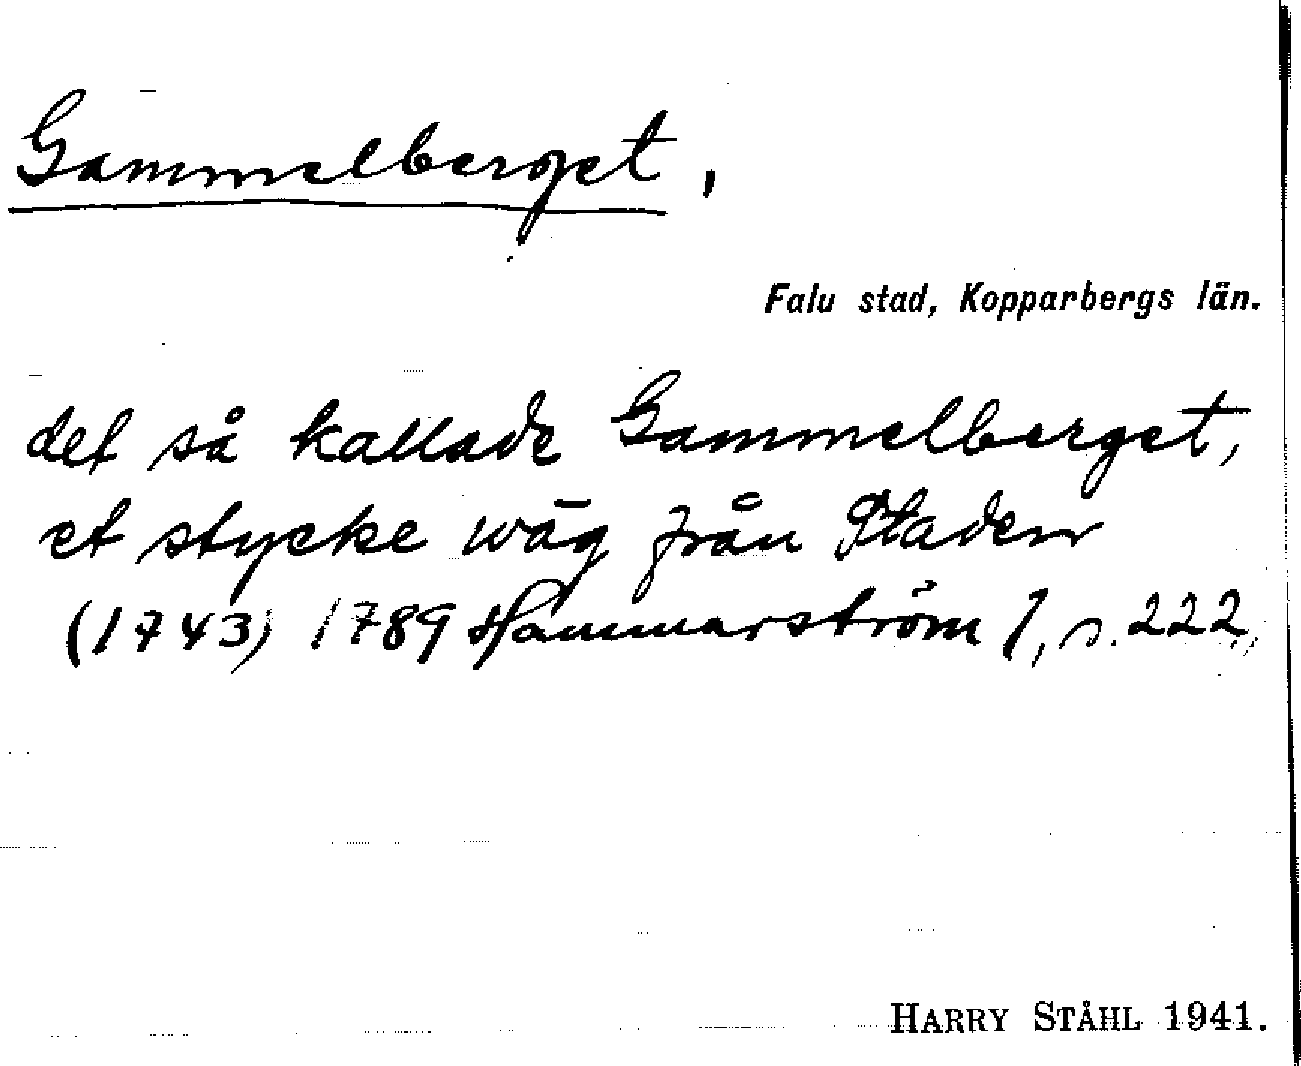 Gammelberget,
Falu stad, Kopparbergs län.
det så kallade Gammelberget,
et stycke wäg från Staden
(1743) 1789 Hammarström 1, s. 222,
HARRY STÅHL 1941.